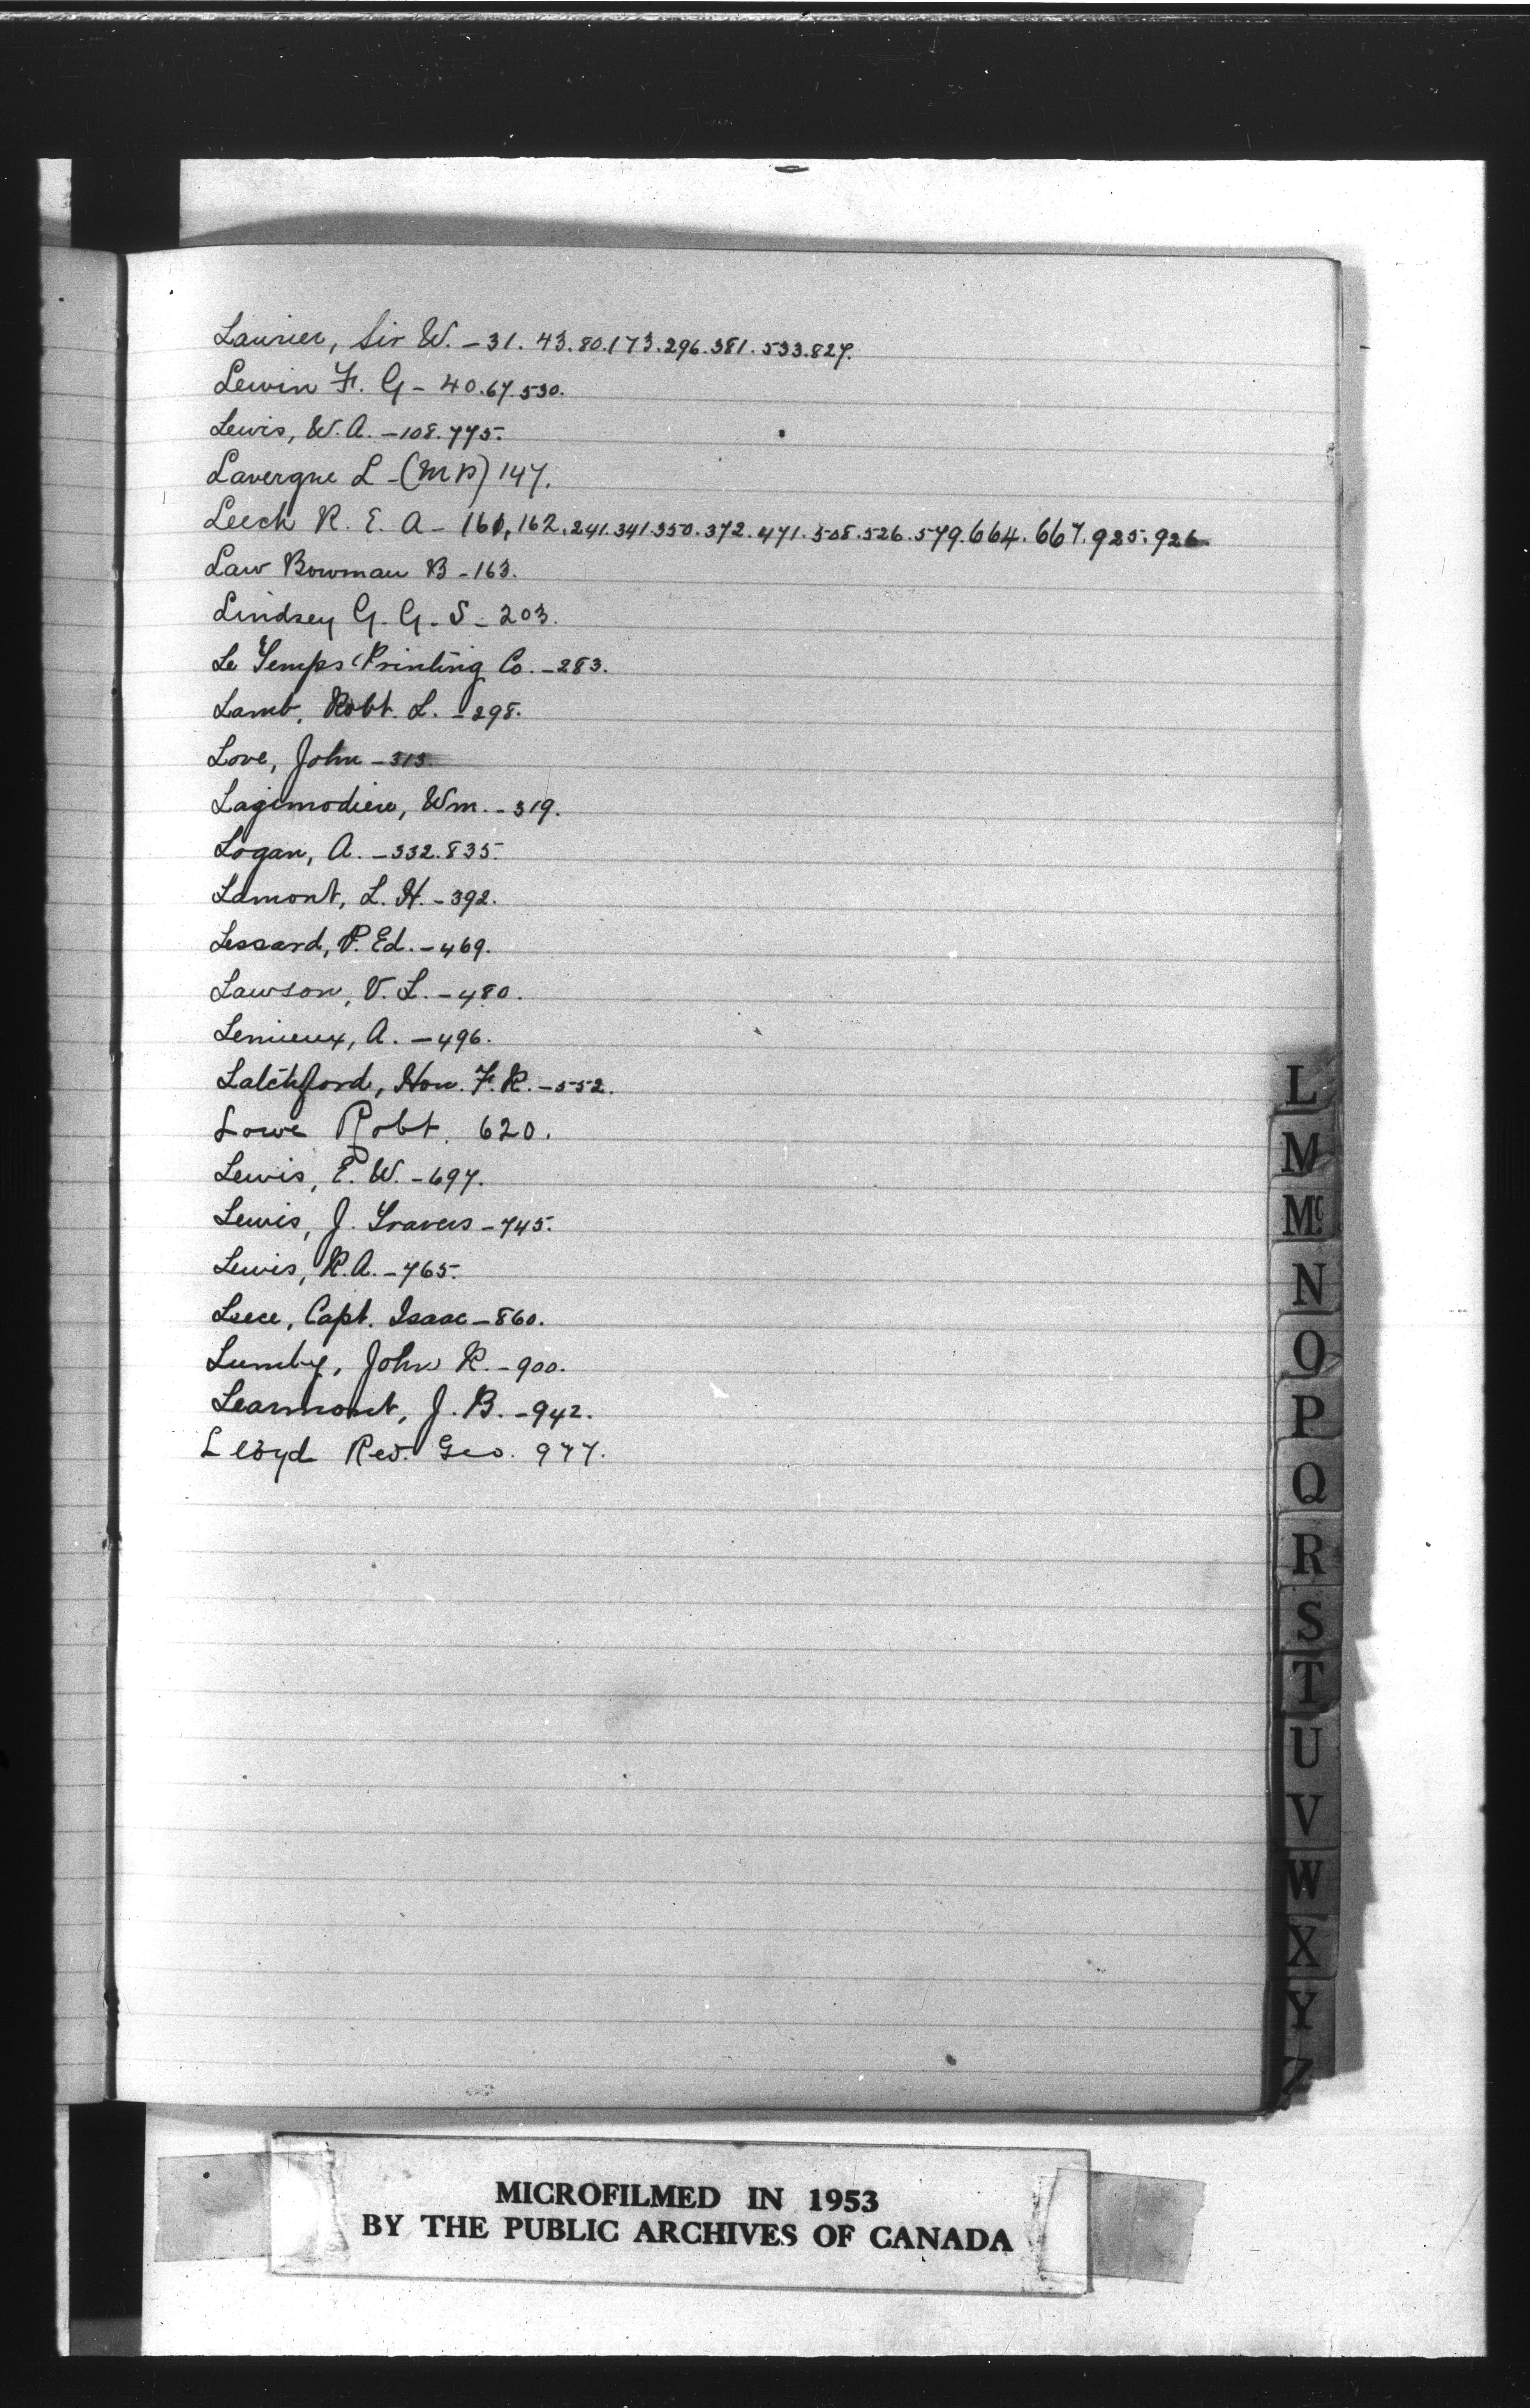 Laurier, Sir W. - 31. 43. 80. 173. 296. 381. 533. 827.
Lewin F. G - 40. 67. 530.
Lewis, W. A. - 108. 775.
Lavergne L - (MP) 147.
Leech R. E. A - 161, 162. 241. 341. 350. 372. 471. 508. 526. 579. 664. 667. 925. 926
Law Bowman B - 163.
Lindsey G. G. S - 203.
Le Temps Printing Co. - 283.
Lamb, Robt. L. - 298.
Love, John - 313.
Lagimodiere, Wm. - 319.
Logan, A. - 332. 835.
Lamont, L. H. - 392.
Lessard, P. Ed. - 469.
Lawson, V. L. - 480.
Lemieux, A. - 496.
Latchford, Hon. F. R. - 552.
Lowe Robt. 620.
Lewis, E. W. - 697.
Lewis, J. Travers - 745.
Lewis, R. A. - 765.
Leece, Capt. Isaac - 860.
Lumby, John R. - 900.
Learmont, J. B. - 942.
Lloyd Rev. Geo. 977.
L
M
Mc
N
O
P
Q
R
S
T
U
V
W
X
Y
Z
MICROFILMED IN 1953
BY THE PUBLIC ARCHIVES OF CANADA